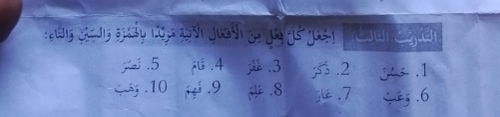 التَّدْرِيْبُ الثَّالِثُ: اِجْعَلْ كُلَّ فِعْلٍ مِنَ الْأَفْعَالِ الْآتِيَةِ مَزِيْدًا بِالْهَمْزَةِ وَالسِّيْنِ وَالتَّاءِ:
1. حَسُنَ 2. ذَكَرَ 3. غَفَرَ 4. قَامَ 5. نَصَرَ
6. وَعَبَ 7. عَارَ 8. عَلِمَ 9. فَهِمَ 10. وَهَبَ